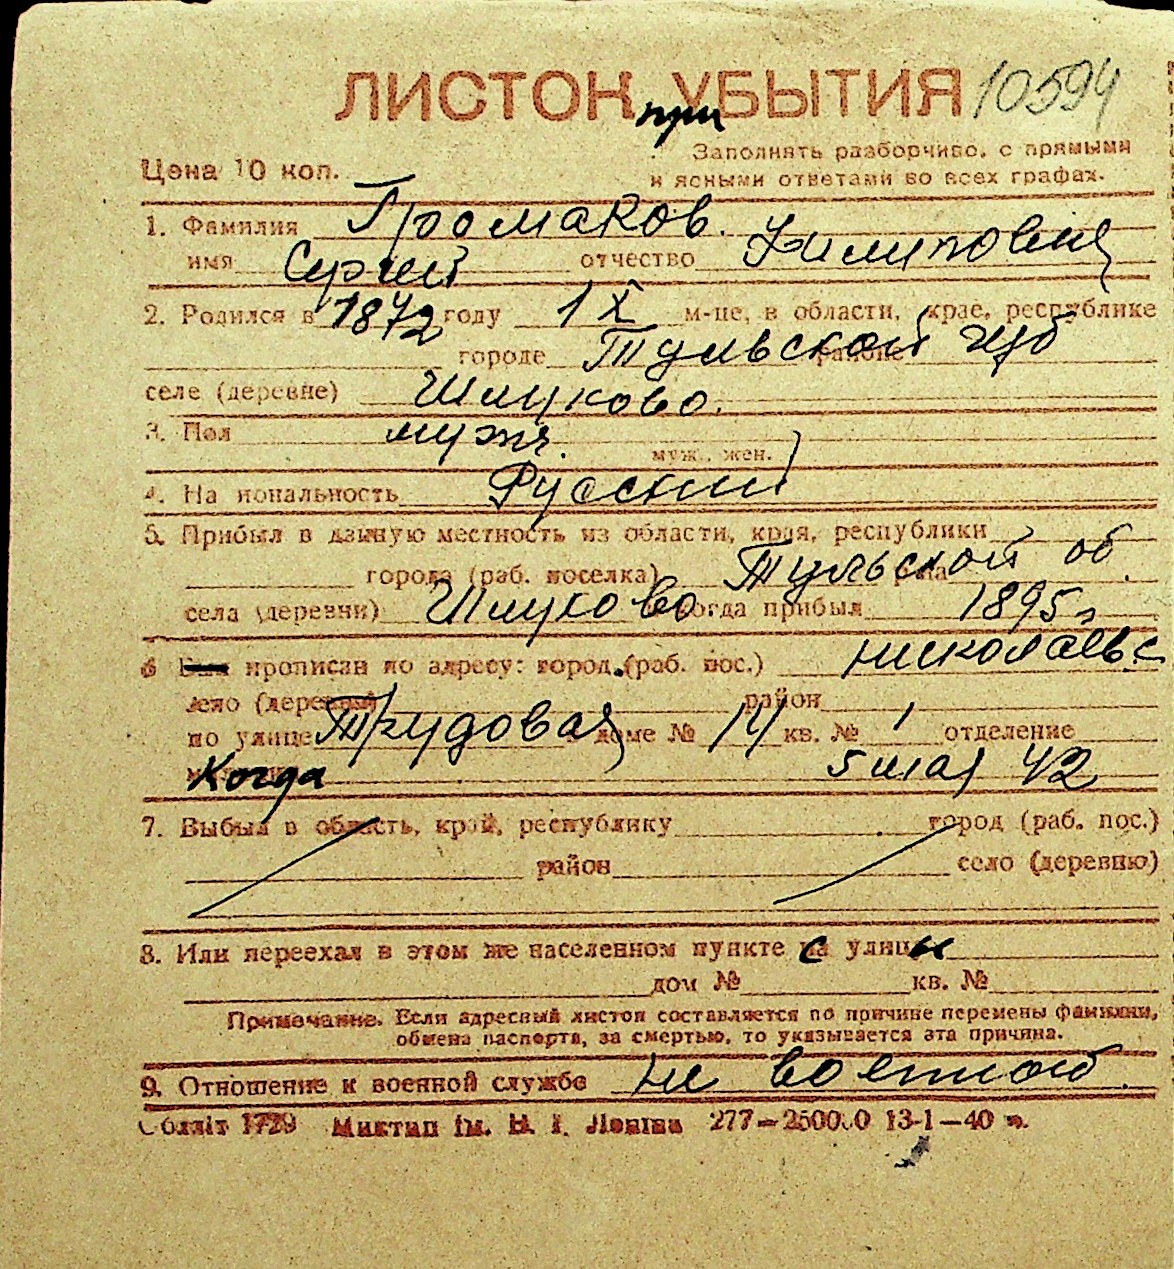 ЛИСТОК УБЫТИЯ 10594
при
Заполнять разборчиво, с прямыми
Цена 10 коп.
и ясными ответами во всех графах.
1. Фамилия Громаков.
имя Сергей отчество Филипович
2. Родился в 1872 году IX м-це, в области, крае, республике
городе Тульской губ районе
селе (деревне) Шлуково.
3. Пол мужч.
муж., жен.
4. На иональность Русский
5. Прибыл в данную местность из области, края, республики
города (раб. поселка) Тульской об. р-на
села (деревни) Шлуково когда прибыл 1895 г
6 прописан по адресу: город (раб. пос.) Николаевс
село (деревня) район
по улице Трудовая доме № 14 кв. № 1 отделение
Когда 5 мая 42
7. Выбыл в область, край, республику город (раб. пос.)
район село (деревню)
8. Или переехал в этом же населенном пункте с улицы
дом № кв. №
Примечание. Если адресный листок составляется по причине перемены фамилии,
обмена паспорта, за смертью, то указывается эта причина.
9. Отношение к военной службе не военнооб.
Обллiт 1729 Миктип iм. В. I. Ленiна 277—250000 13-1—40 р.